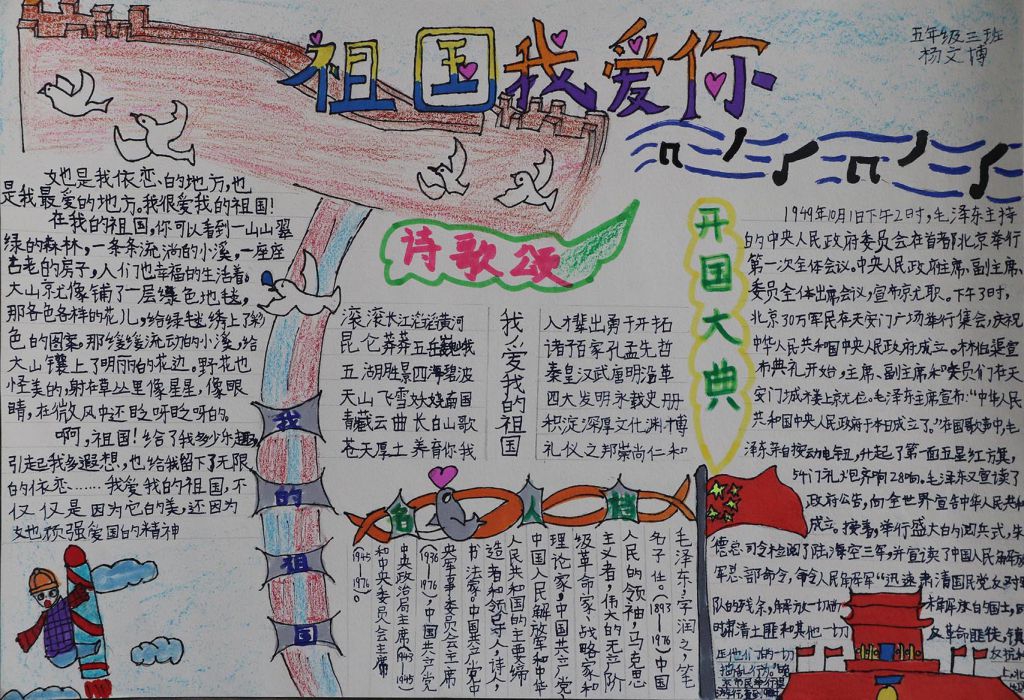 祖国我爱你
五年级三班
杨文博
她也是我依恋的地方,也
是我最爱的地方。我很爱我的祖国!
在我的祖国,你可以看到一山山翠
绿的森林,一条条流淌的小溪,一座座
古老的房子,人们也幸福的生活着。
大山就像铺了一层绿色地毯,
那各色各样的花儿,给绿毯绣上了彩
色的图案。那缓缓流动的小溪,给
大山镶上了明丽的花边。野花也
怪美的,射在草丛里像星星,像眼
睛,在微风中还眨呀眨呀的。
啊,祖国!给了我多少乐趣,
引起我多遐想,也给我留下了无限
的依恋……我爱我的祖国,不
仅仅是因为它的美,还因为
她顽强爱国的精神
我的祖国
诗歌颂
滚滚长江滔滔黄河
昆仑莽莽五岳巍峨
五湖胜景四海碧波
天山飞雪妙娆南国
青藏云曲长白山歌
苍天厚土养育你我
我爱我的祖国
人才辈出勇于开拓
诸子百家孔孟先哲
秦皇汉武唐明沿革
四大发明永载史册
积淀深厚文化渊博
礼仪之邦崇尚仁和
名人档
毛泽东,字润之,笔
名子任。(1893—1976)中国
人民的领袖,马克思
主义者,伟大的无产阶
级革命家、战略家和
理论家,中国共产党
中国人民解放军和中华
人民共和国的主要缔
造者和领导人,诗人,
书法家。中国共产党中
央军事委员会主席
1976),中国共产党
中央政治局主席(1943
1976)
和中央委员会主席
(1945
—1976)。
开国大典
1949年10月1日下午2时,毛泽东主持
的中央人民政府委员会在首都北京举行
第一次全体会议。中央人民政府主席、副主席、
委员全体出席会议,宣布就职。下午3时,
北京30万军民在天安门广场举行集会,庆祝
中华人民共和国中央人民政府成立。林伯渠宣
布典礼开始,主席、副主席和委员们在天
安门城楼上就位。毛泽东主席宣布:“中华人民
共和国中央人民政府于本日成立了。”在国歌声中,毛
泽东亲自按动电钮,升起了第一面五星红旗,
54门礼炮齐响28响。毛泽东又宣读了
政府公告,向全世界宣告中华人民
成立。接着,举行盛大的阅兵式,朱
德总司令检阅了陆海空三军,并宣读了中国人民解放
军总部命令,命令人民解放军“迅速肃清国民党反动
队的残余,解放一切尚未解放的国土,同
时肃清土匪和其他一切反革命匪徒,镇
压他们的一切反抗和
捣乱行为。”